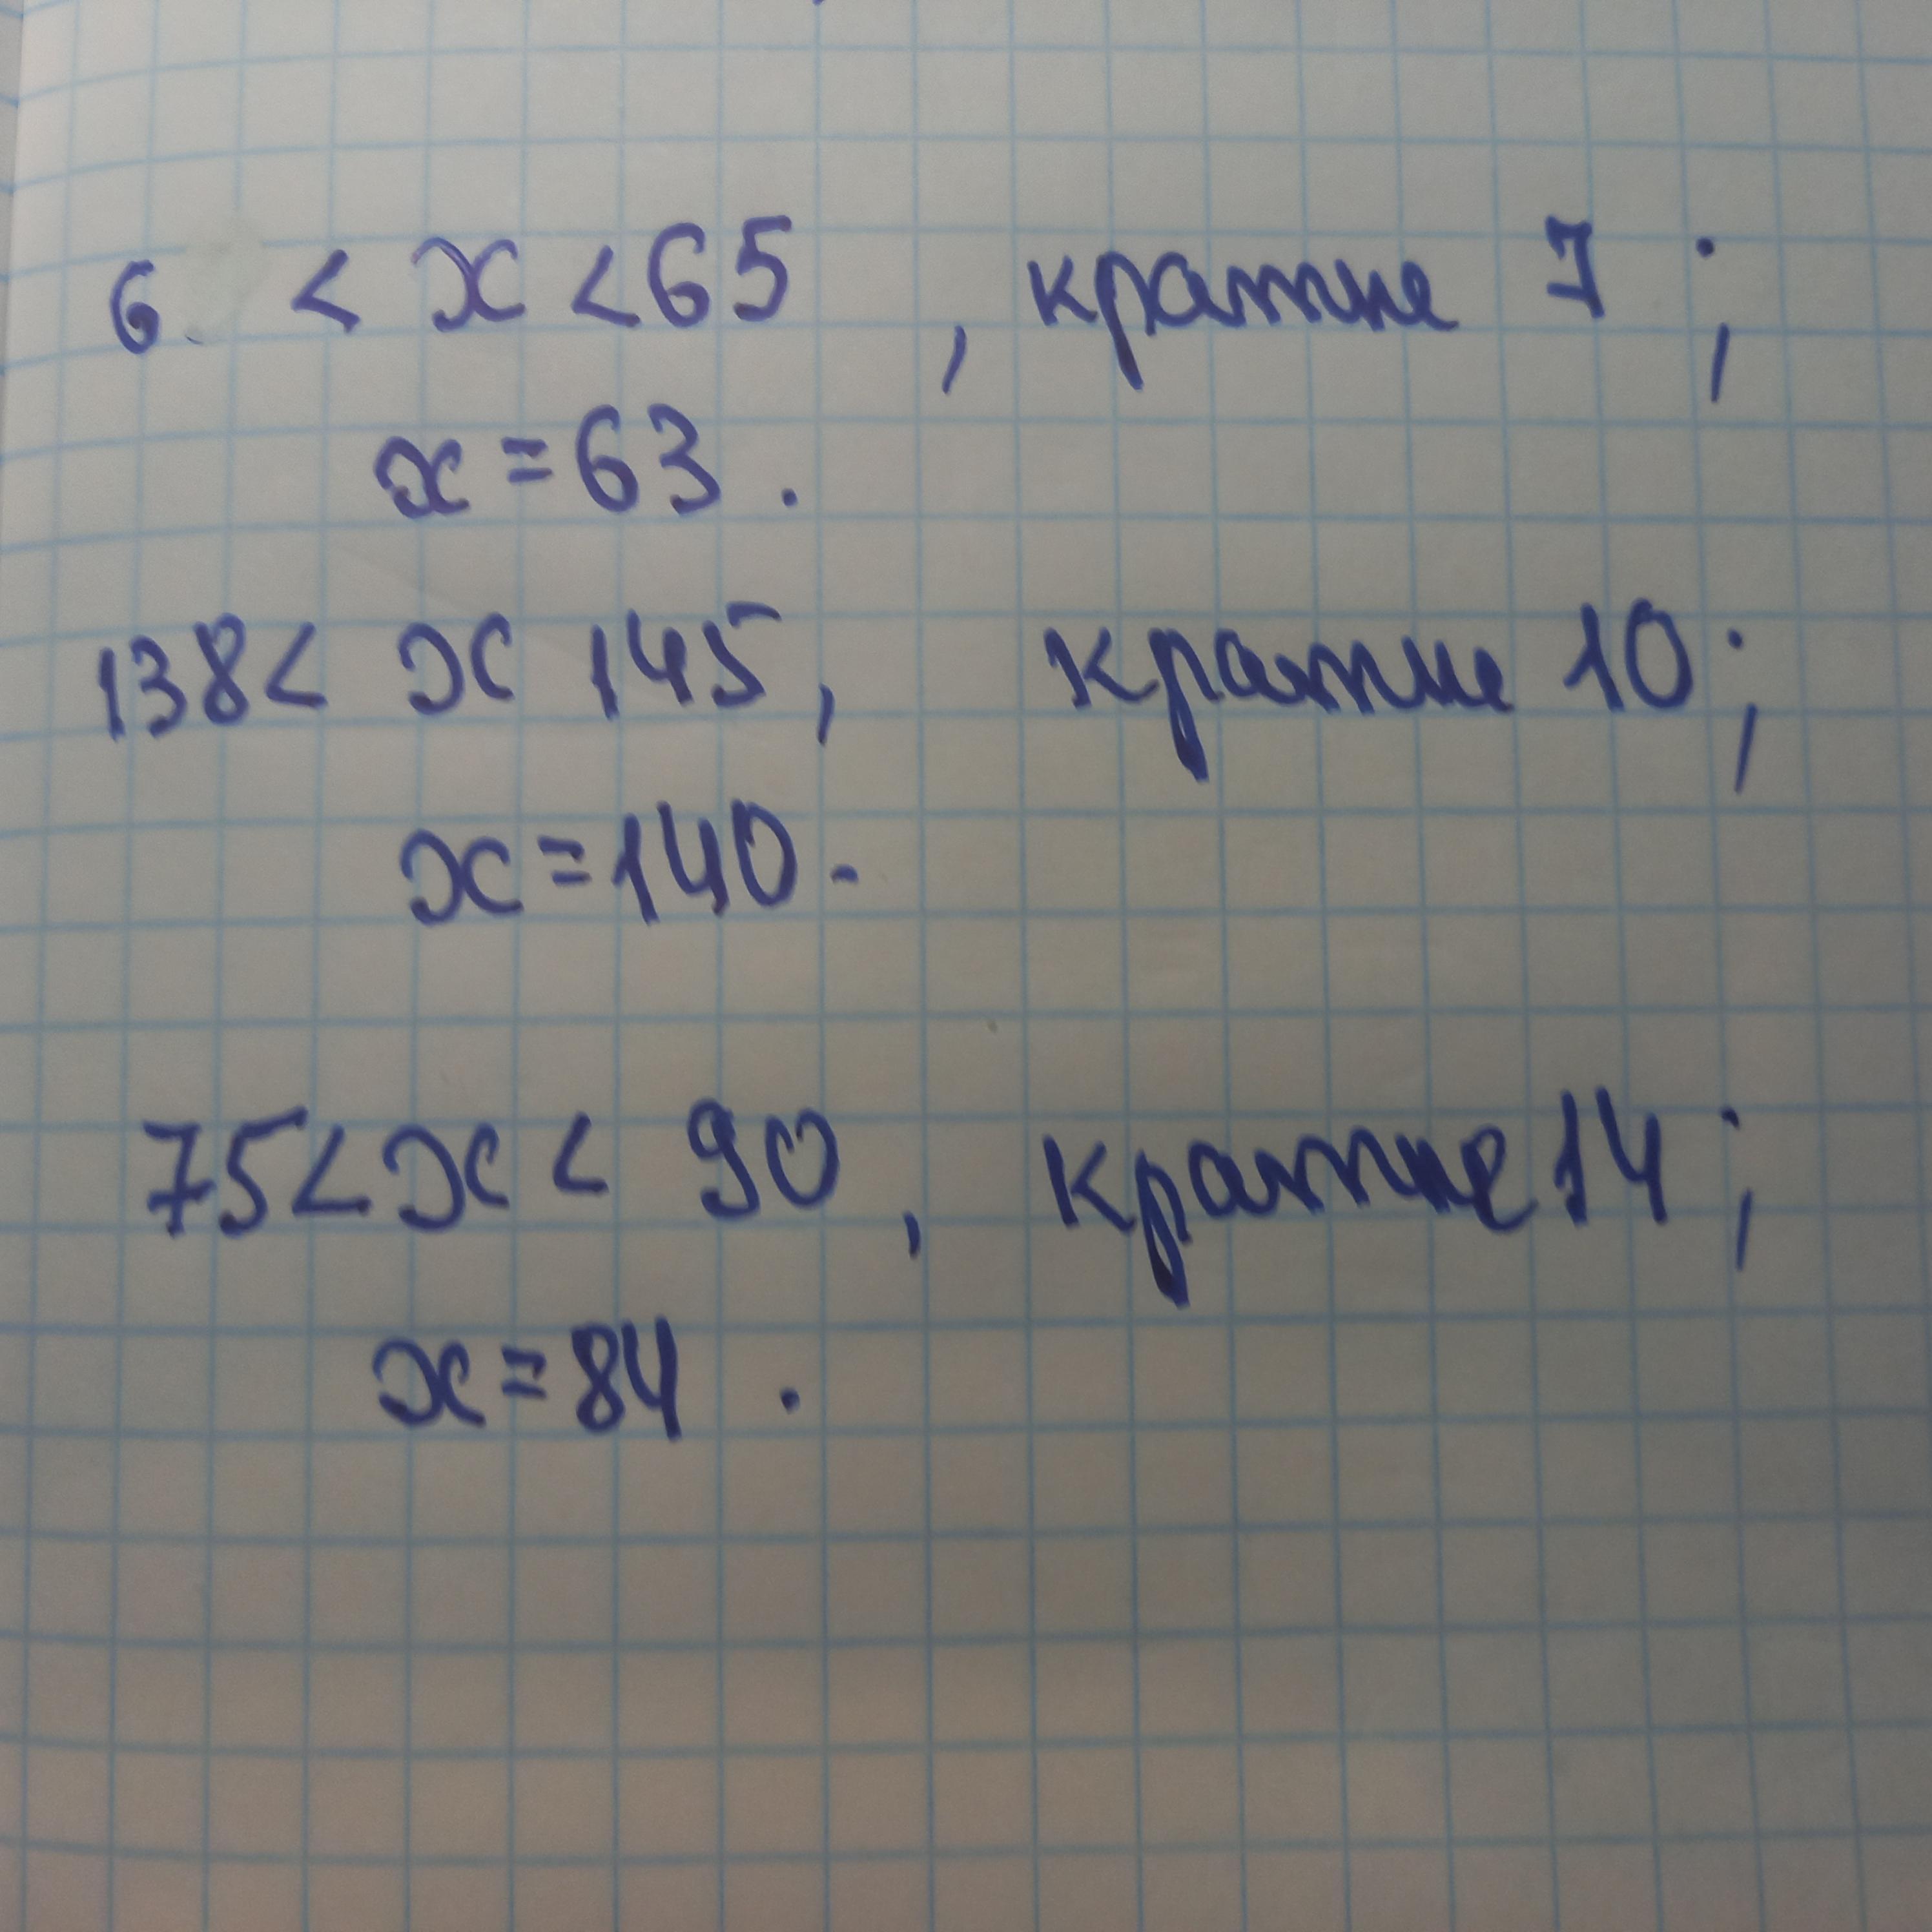 6 < x < 65 , кратне 7 ;
x = 63 .
138 < x 145 , кратне 10 ;
x = 140 .
75 < x < 90 , кратне 14 ;
x = 84 .